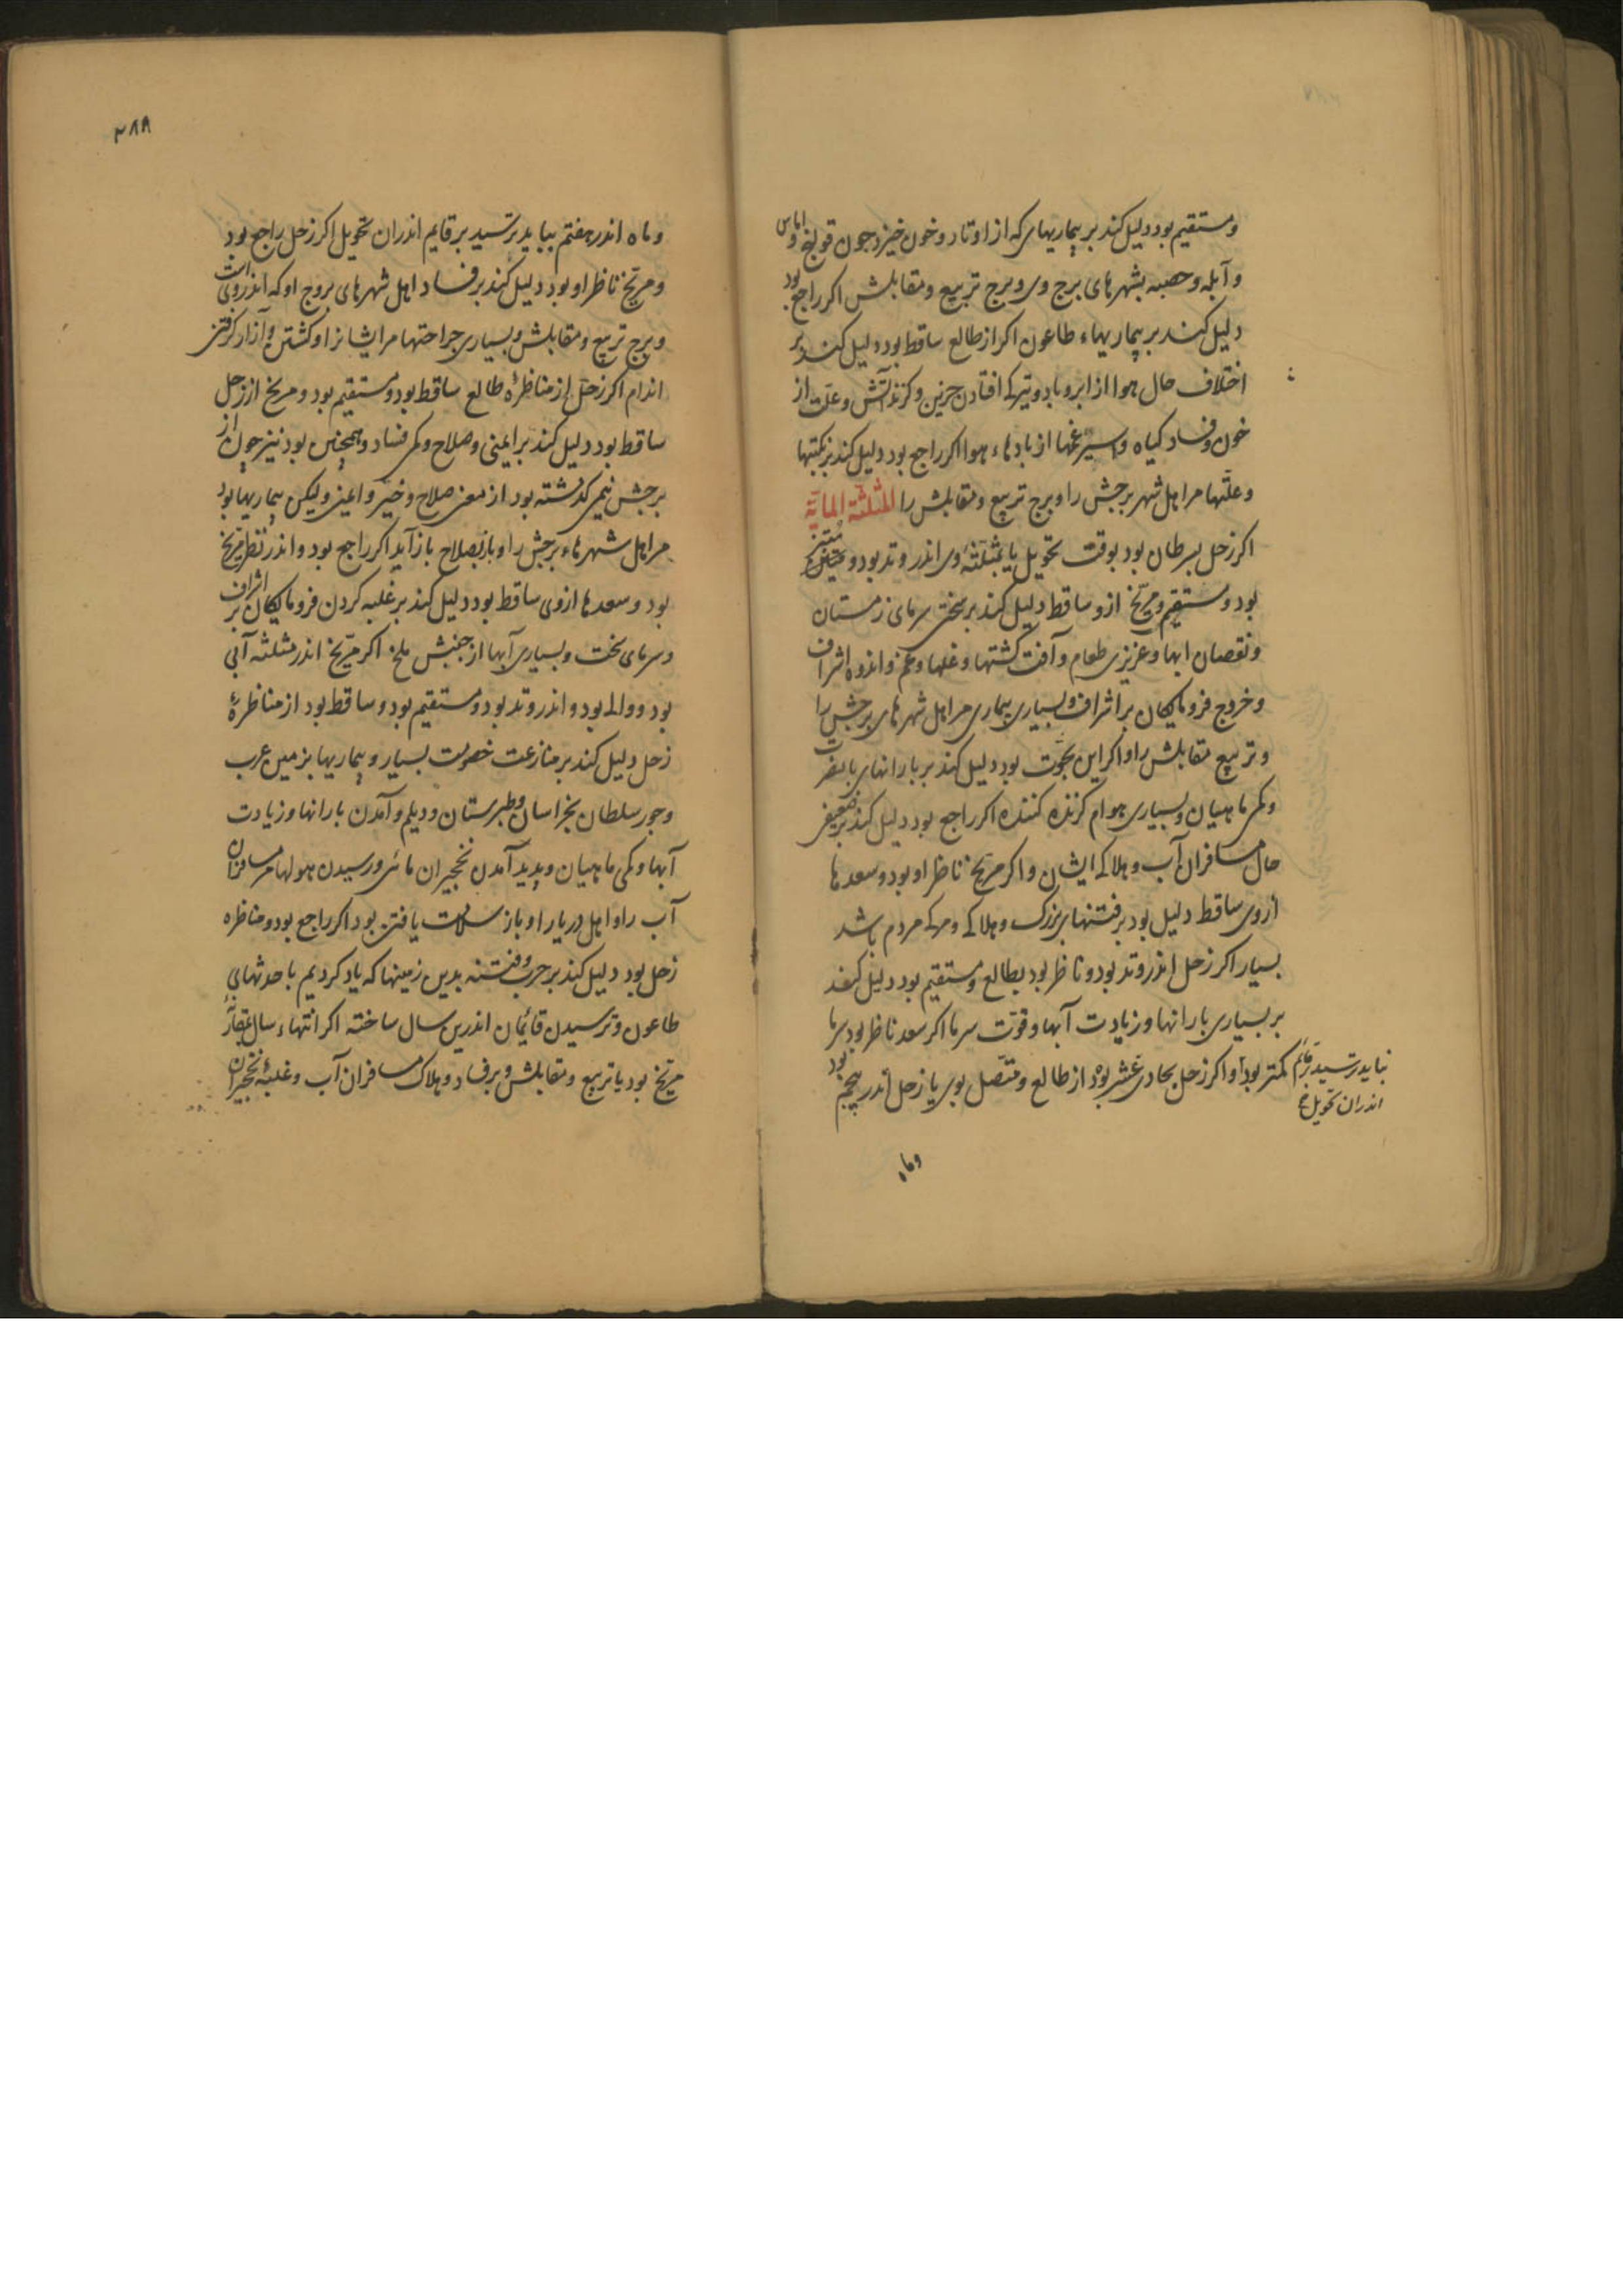 ومستقیم بود دلیل کند بر بیماریهای که از اوتار و خون خیزد جون قولنج و اماس
و آبله و حصبه بشهرهای برج وی و برج تربیع ومقابلش اکر راجع بود
دلیل کند بر بیماریهاء طاعون اکر از طالع ساقط بود دلیل کند بر
اختلاف حال هوا از ابر و باد و تیرکی افتادن حزین و کزند آتش وعلت از
خون وفساد کیاه و اسپرغمها از بادهاء هوا اکر راجع بود دلیل کند بر نکبتها
وعلّتها مر اهل شهر برجش را وبرج تربیع ومقابلش را المثلثة المائیّة
اکر زحل بسرطان بود بوقت تحویل یا بمثلّثهٔ وی اندر وتد بود و
بود ومستقیم ومرّیخ ازو ساقط دلیل کند بر سختی سرمای زمستان
ونقصان ابها وعزیزی طعام وآفت کشتها وغلها وغم واندوه اشراف
وخروج فرومایکان بر اشراف وبسیاری بیماری مر اهل شهرهای برجش را
وتربیع مقابلش را و اکر این بحوت بود دلیل کند بر بارانهای با مضرت
وکمی ماهیان وبسیاری هوام کزنده کننده اکر راجع بود دلیل کند بر ضعیفی
حال مسافران آب وهلاکه ایشان و اکر مرّیخ ناظر او بود وسعدها
ازوی ساقط دلیل بود بر فتنهای بزرک وهلاکه ومرکه مردم باشد
بسیار اکر زحل اندر وتد بود وناظر بود بطالع ومستقیم بود دلیل کند
بر بسیاری بارانها وزیادت آبها وقوّت سرما اکر سعد ناظر بود سرما
کمتر بود و اکر زحل بحادی عشر بود از طالع ومتّصل بوی یا زحل اندر پنجم بود
نباید ترسید قایم
اندران تحویل
وماه
۳۸۸
وماه اندر هفتم بباید ترسید بر قایم اندران تحویل اکر زحل راجع بود
ومرّیخ ناظر او بود دلیل کند بر فساد اهل شهرهای بروج او که اندروی است
وبرج تربیع ومقابلش وبسیاری جراحتها مرایشانرا و کشتن و آزار کرفتن
اندام اکر زحل از مناظرهٔ طالع ساقط بود ومستقیم بود ومریخ از زحل
ساقط بود دلیل کند بر ایمنی وصلاح وکمی فساد وهمچنین بود نیز چون از
برجش نیمی کذشته بود از معنی صلاح وخیر وایمنی ولیکن بیماریها بود
مر اهل شهرهاء برجش را وباز بصلاح باز آید اکر راجع بود واندر نظر مرّیخ
بود وسعدها ازوی ساقط بود دلیل کند بر غلبه کردن فرومایکان بر اشراف
وسرمای سخت وبسیاری آبها از جنبش ملخ اکر مرّیخ اندر مثلثه آبی
بود و والی بود واندر وتد بود ومستقیم بود وساقط بود از مناظرهٔ
زحل دلیل کند بر منازعت خصومت بسیار وبیماریها بزمین عرب
وجور سلطان بخراسان وطبرستان ودیلم وآمدن بارانها وزیادت
آبها وکمی ماهیان وپدید آمدن نخجیران مائی ورسیدن هولها مر مسافران
آب را واهل دریا را وباز سلامت یافتن بود اکر راجع بود ومناظره
زحل بود دلیل کند بر حرب وفتنه بدین زمینها که یاد کردیم با حدثهای
طاعون وترسیدن قائمان اندرین سال ساخته اکر انتهاء سال
مریخ بود یا تربیع ومقابلش وبر فساد وهلاک مسافران آب وغلبهٔ نخجیران